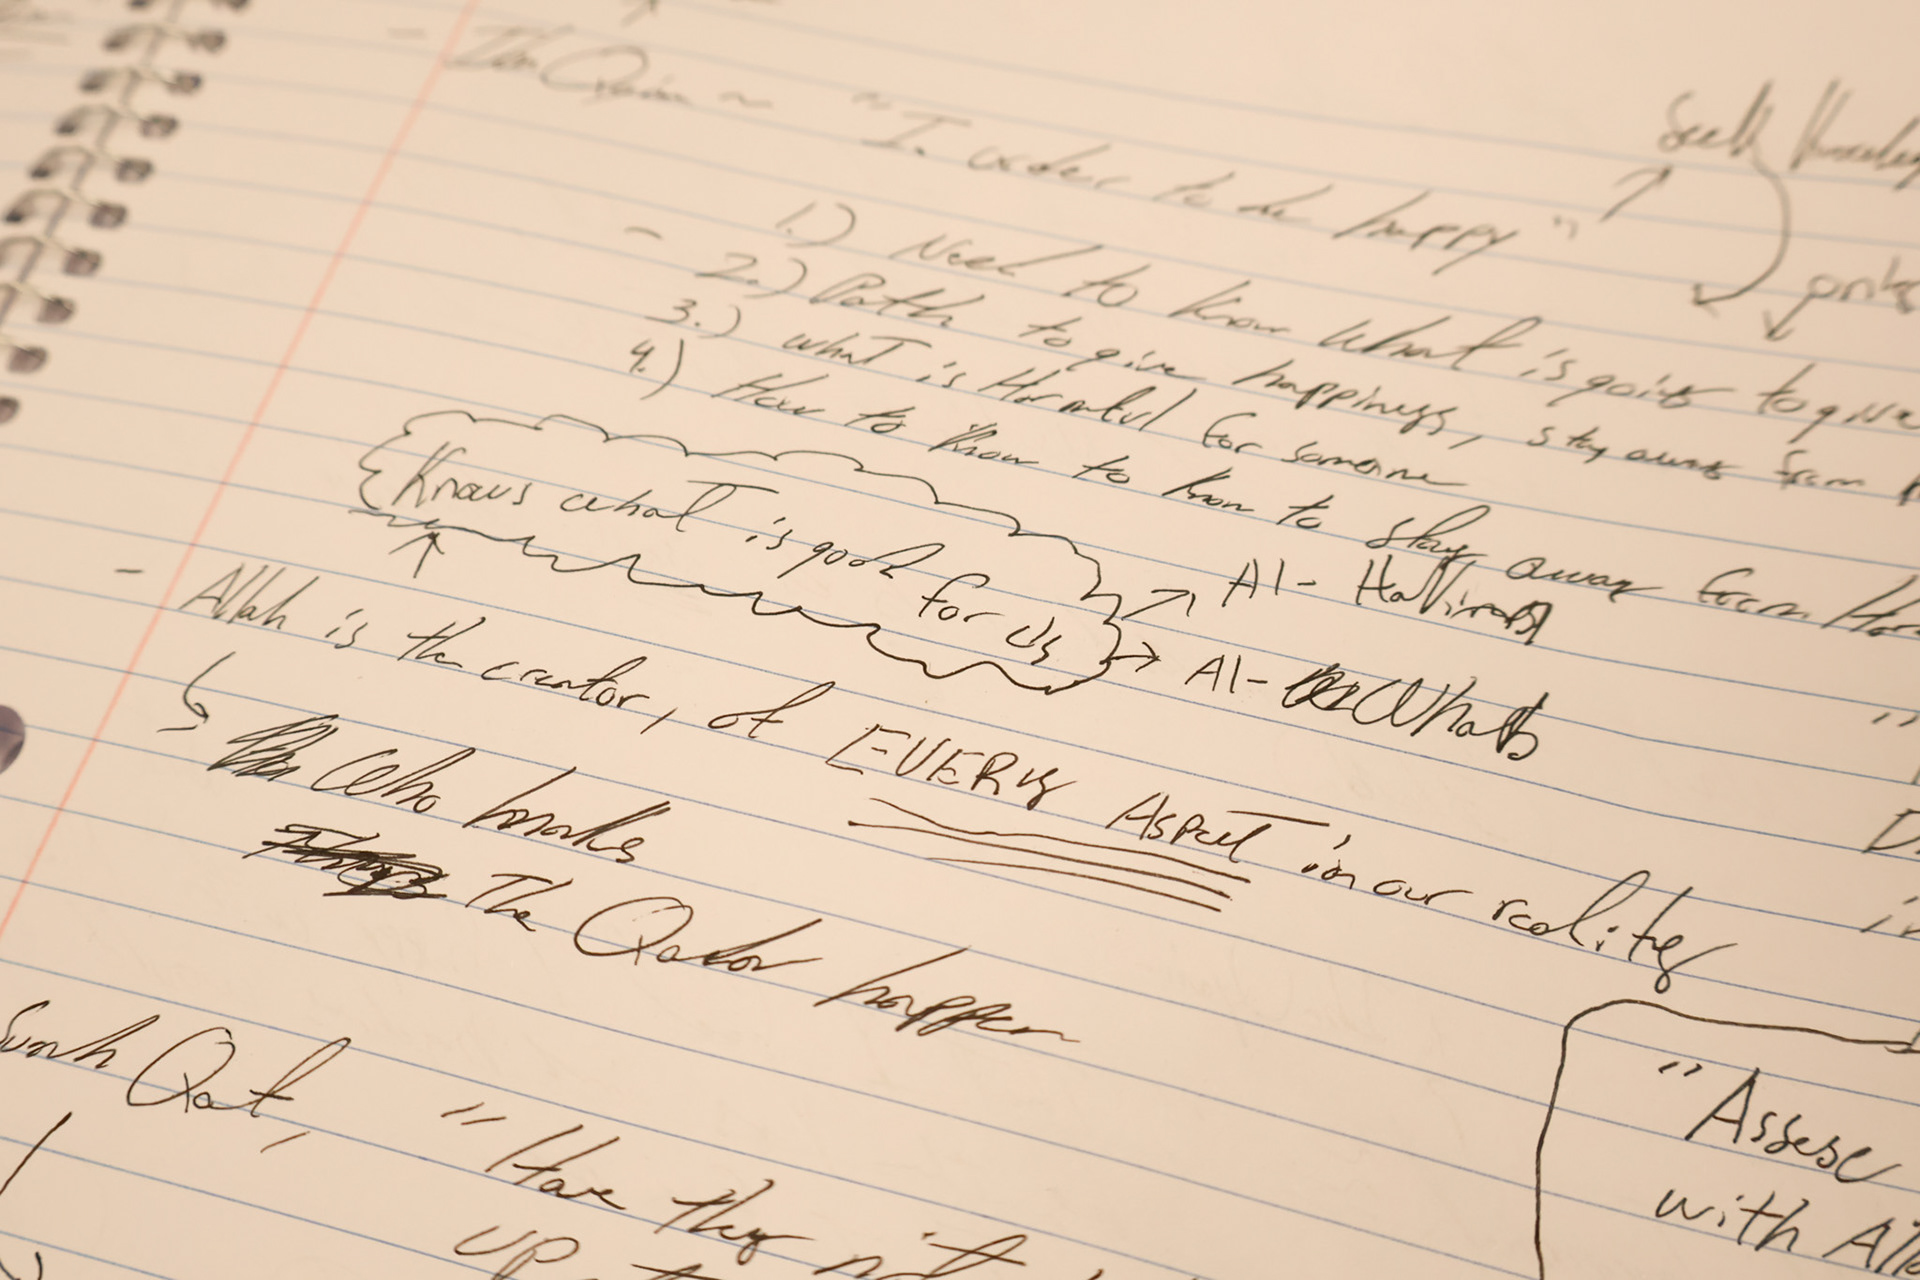 - Ibn Qaim ~ "In order to be happy"
Seek
1.) Need to know what is going to give
- 2.) Path to give happiness, stay away from
3.) what is Harmful for someone
4.) How to know to know to stay away from
Knows what is good for us
Al-
Al- Whab
- Allah is the creator, of EVERY Aspect in our reality
Who makes
The Qadar happen
Surah Qaf, "Have they not
up
"Assess
with